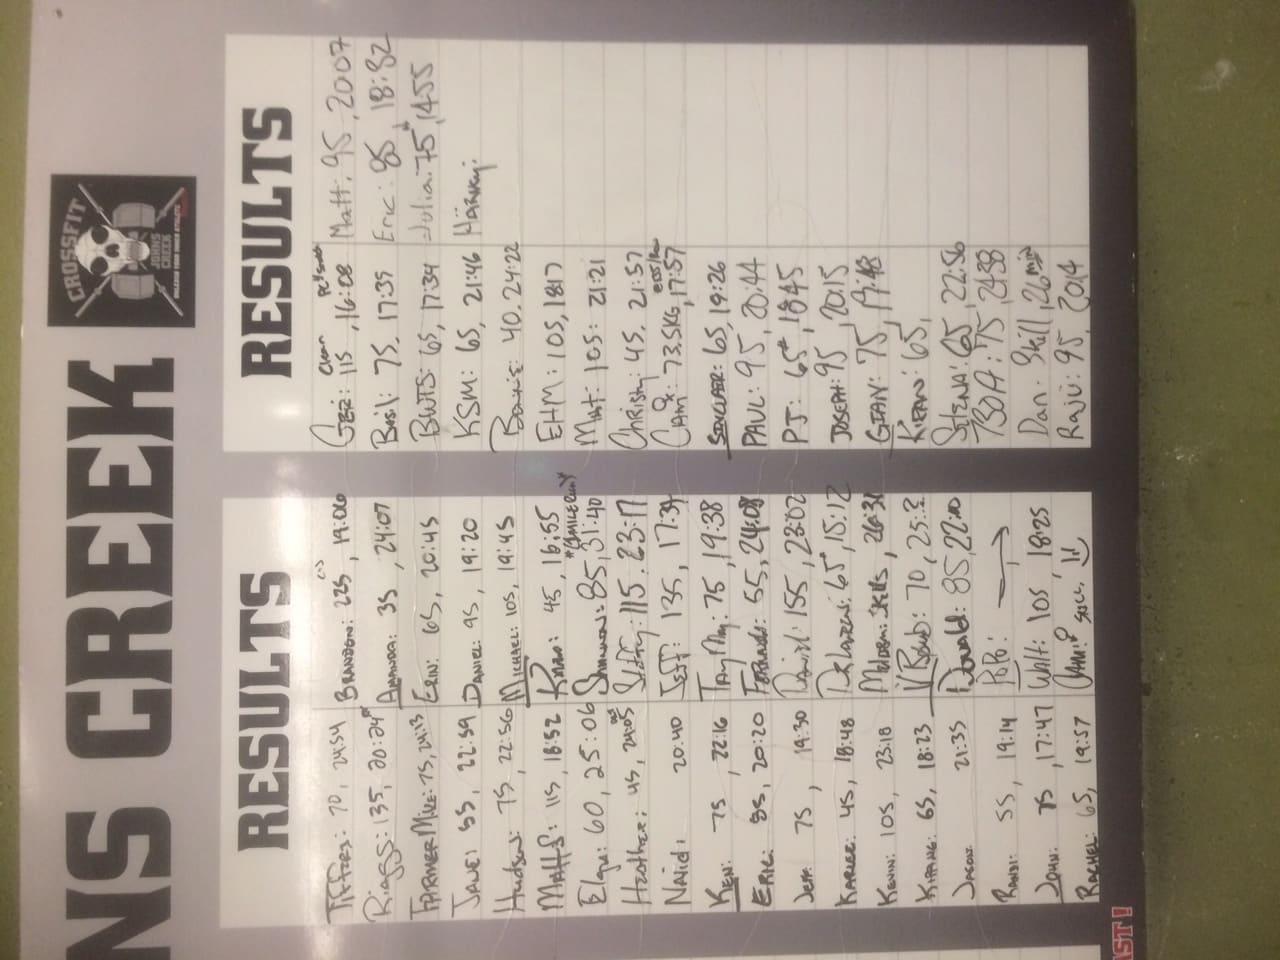 NS CREEK
CROSSFIT
JOHNS
CREEK
RESULTS
70, 24:54
Riggs: 135, 20:24
FARMER MIKE: 75, 24:13
JANE: 55, 22:59
Hudson: 75, 22:56
MATT S: 115, 18:52
60, 25:06
Heather: 45, 24:05
Navid: 20:40
KEN: 75, 22:16
ERIC: 85, 20:20
Jeff: 75, 19:30
KAREE: 45, 18:48
KEVIN: 105, 23:18
65, 18:23
JASON: 21:35
RANDI: 55, 19:14
JOHN: 75, 17:47
RACHEL: 65, 19:57
BRANDON: 225, 19:06
AMANDA: 35, 24:07
ERIN: 65, 20:45
DANIEL: 95, 19:20
MICHAEL: 105, 19:45
45, 16:55
SHANNON: 85, 31:40
115, 23:17
JEFF: 135, 17:34
75, 19:38
55, 24:08
Daniel: 155, 23:02
65#, 15:12
70,
Donald: 85, 22:00
Walt: 105 18:25
RESULTS
115, 16:08
Basil: 75, 17:39
BWTS: 65, 17:34
KSM: 65, 21:46
40, 24:22
EHM: 105, 18:17
Matt: 105: 21:21
Christy: 45, 21:57
CAM: 73.5KG, 17:57
SINCLAIR: 65, 19:26
PAUL: 95, 20:44
PJ: 65#, 18:45
JOSEPH: 95, 20:15
GIAN: 75, 19:48
65,
65, 22:56
75, 24:38
Dan: Skill, 26 min
Raju: 95, 20:14
RESULTS
Matt: 95, 2007
Eric: 85, 18:32
Julia: 75#, 1455